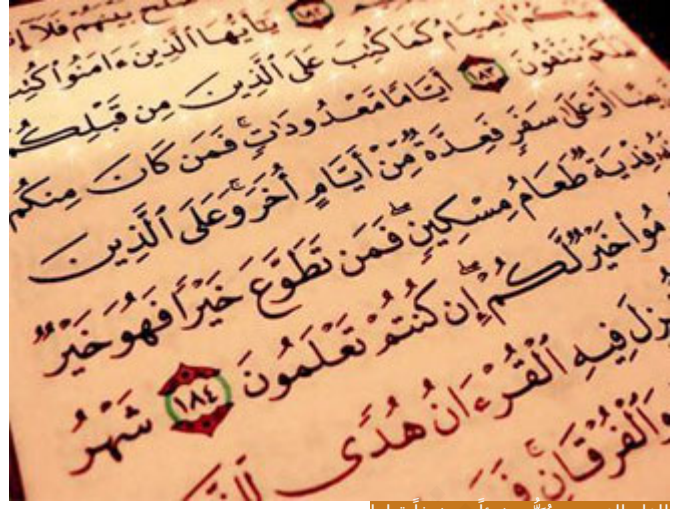 بَيْنَهُمْ فَلَآ
١٨٢ يَٰٓأَيُّهَا ٱلَّذِينَ ءَامَنُوا۟ كُتِبَ
ٱلصِّيَامُ كَمَا كُتِبَ عَلَى ٱلَّذِينَ مِن قَبْلِكُمْ
تَتَّقُونَ ١٨٣ أَيَّامًا مَّعْدُودَٰتٍ ۚ فَمَن كَانَ مِنكُم
أَوْ عَلَىٰ سَفَرٍ فَعِدَّةٌ مِّنْ أَيَّامٍ أُخَرَ ۚ وَعَلَى ٱلَّذِينَ
فِدْيَةٌ طَعَامُ مِسْكِينٍ ۖ فَمَن تَطَوَّعَ خَيْرًا فَهُوَ خَيْرٌ
خَيْرٌ لَّكُمْ ۖ إِن كُنتُمْ تَعْلَمُونَ ١٨٤ شَهْرُ
فِيهِ ٱلْقُرْءَانُ هُدًى
وَٱلْفُرْقَانِ ۚ